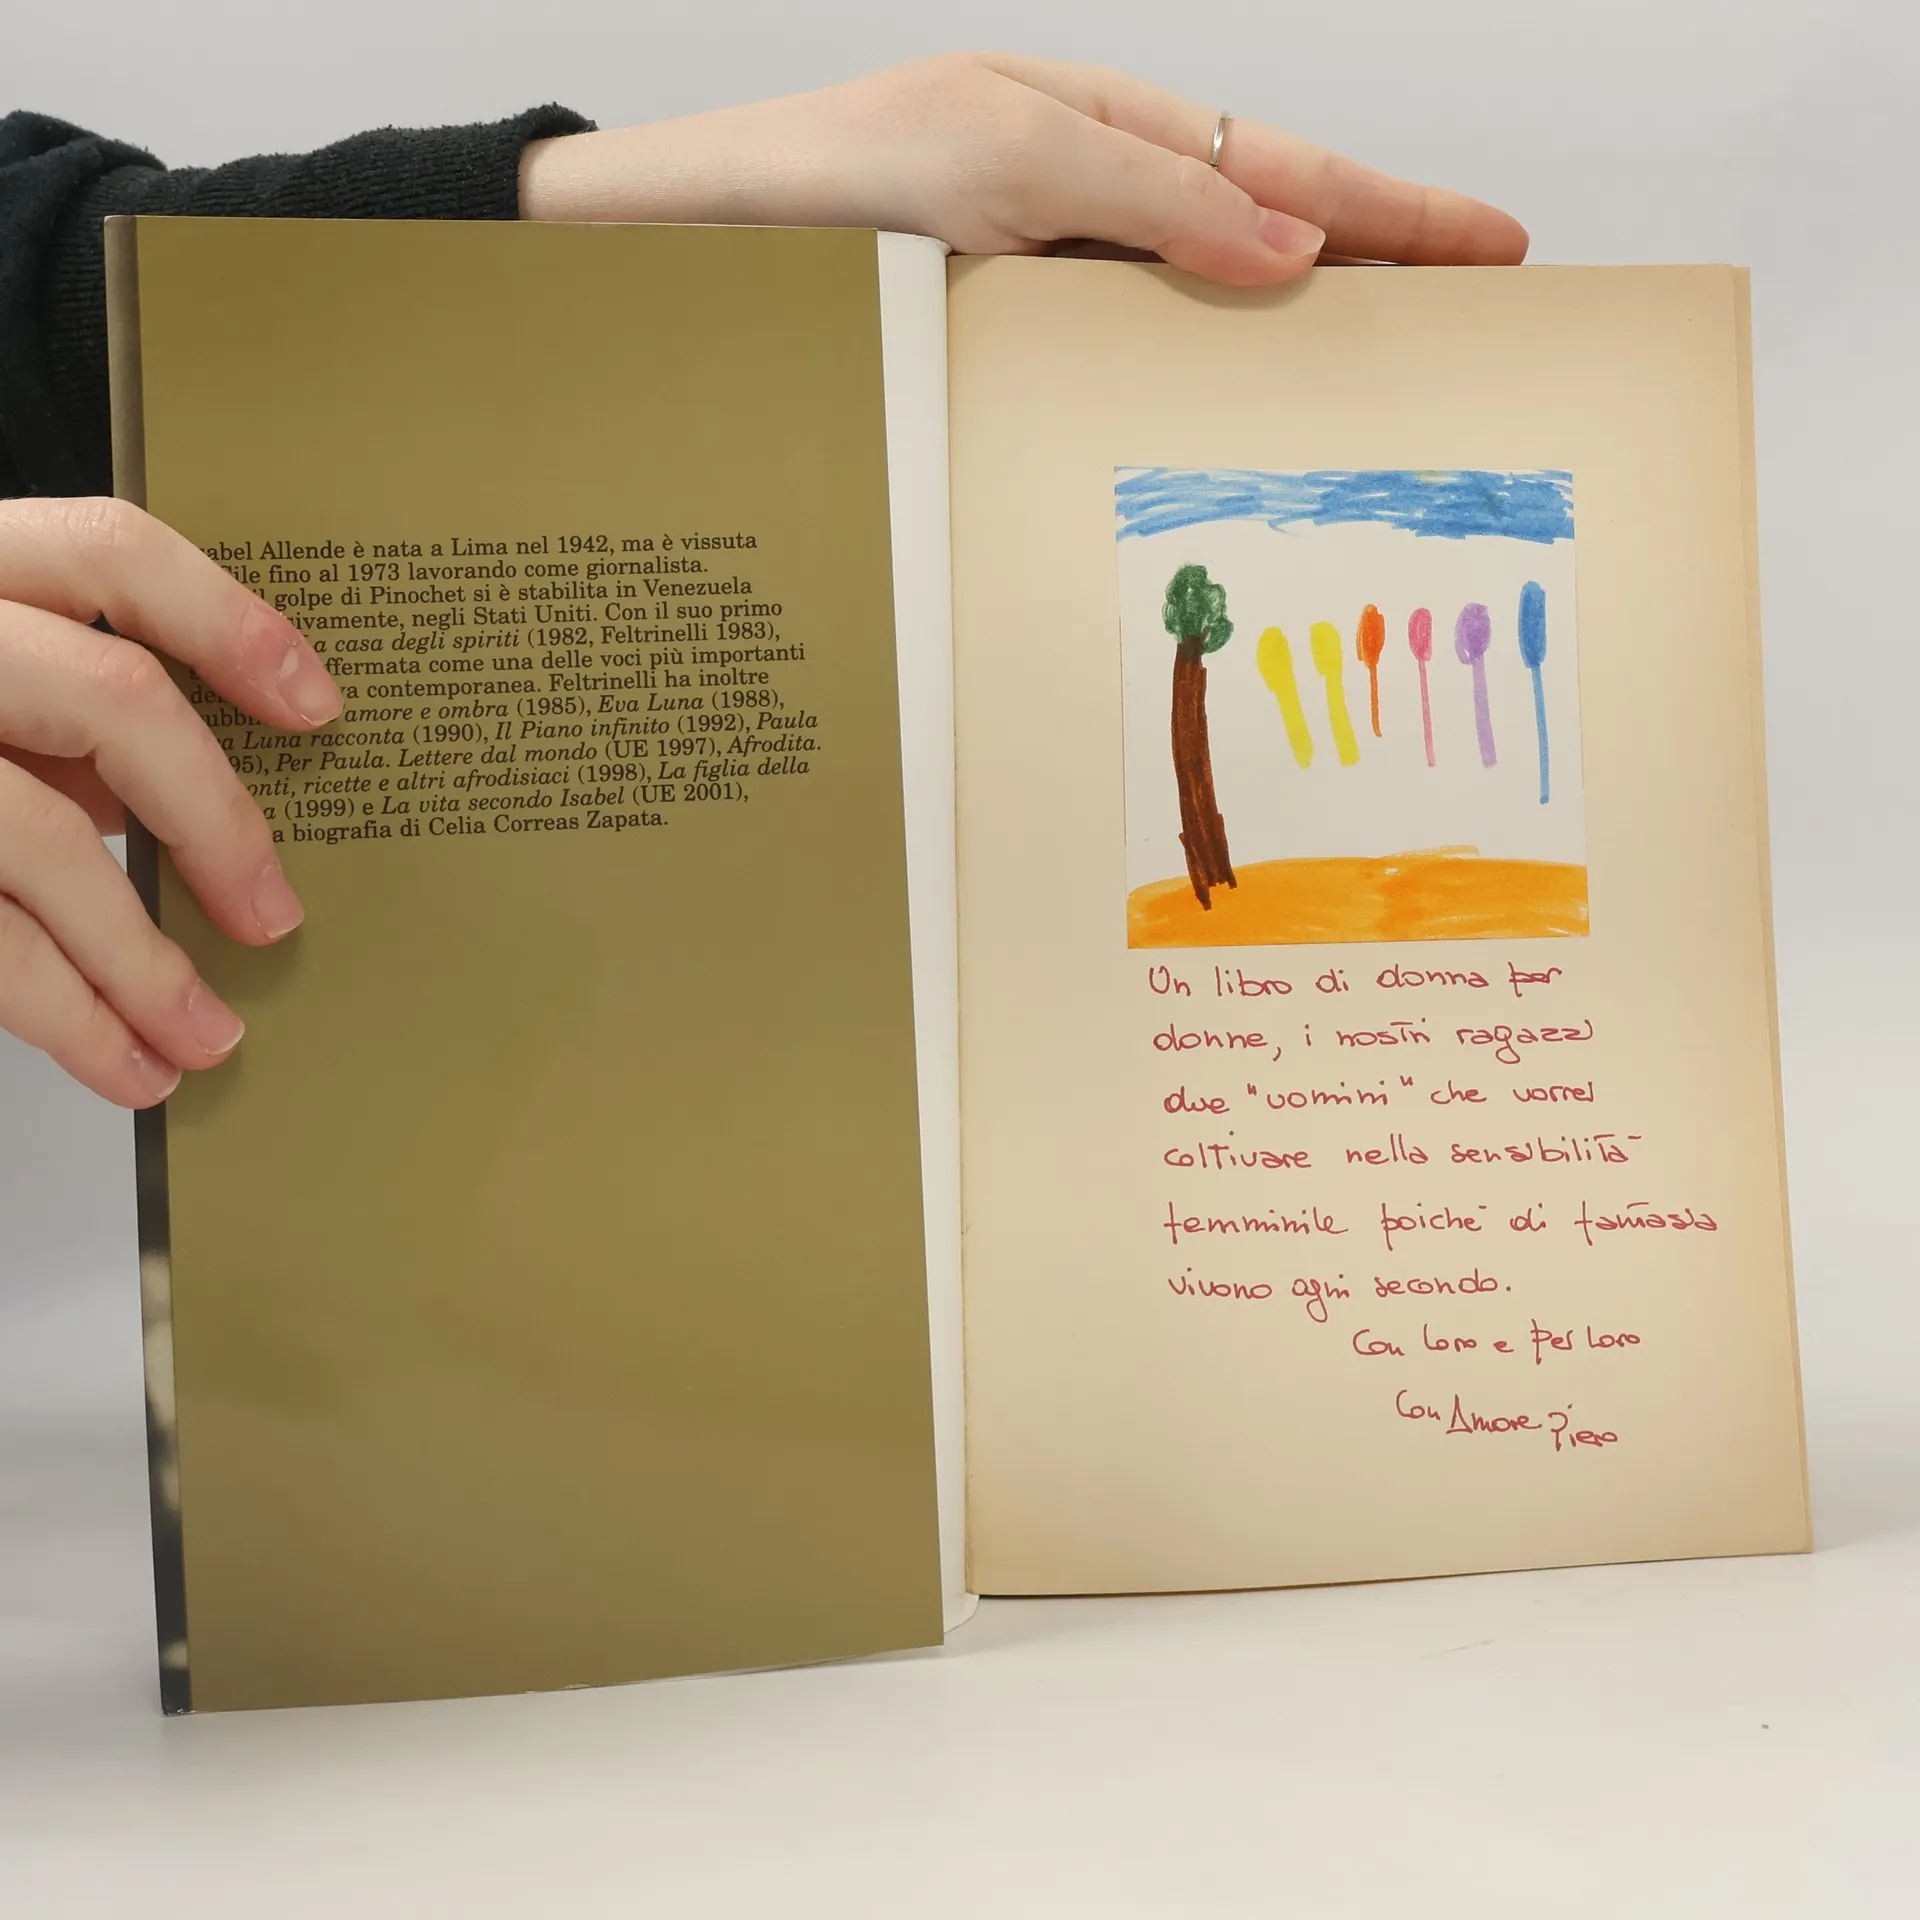 abel Allende è nata a Lima nel 1942, ma è vissuta
ile fino al 1973 lavorando come giornalista.
il golpe di Pinochet si è stabilita in Venezuela
ivamente, negli Stati Uniti. Con il suo primo
a casa degli spiriti (1982, Feltrinelli 1983),
ffermata come una delle voci più importanti
del va contemporanea. Feltrinelli ha inoltre
pubbl amore e ombra (1985), Eva Luna (1988),
a Luna racconta (1990), Il Piano infinito (1992), Paula
95), Per Paula. Lettere dal mondo (UE 1997), Afrodita.
onti, ricette e altri afrodisiaci (1998), La figlia della
a (1999) e La vita secondo Isabel (UE 2001),
a biografia di Celia Correas Zapata.
Un libro di donna per
donne, i nostri ragazzi
due "uomini" che vorrei
coltivare nella sensibilità
femminile poichè di fantasia
vivono ogni secondo.
Con loro e per loro
Con Amore Piero